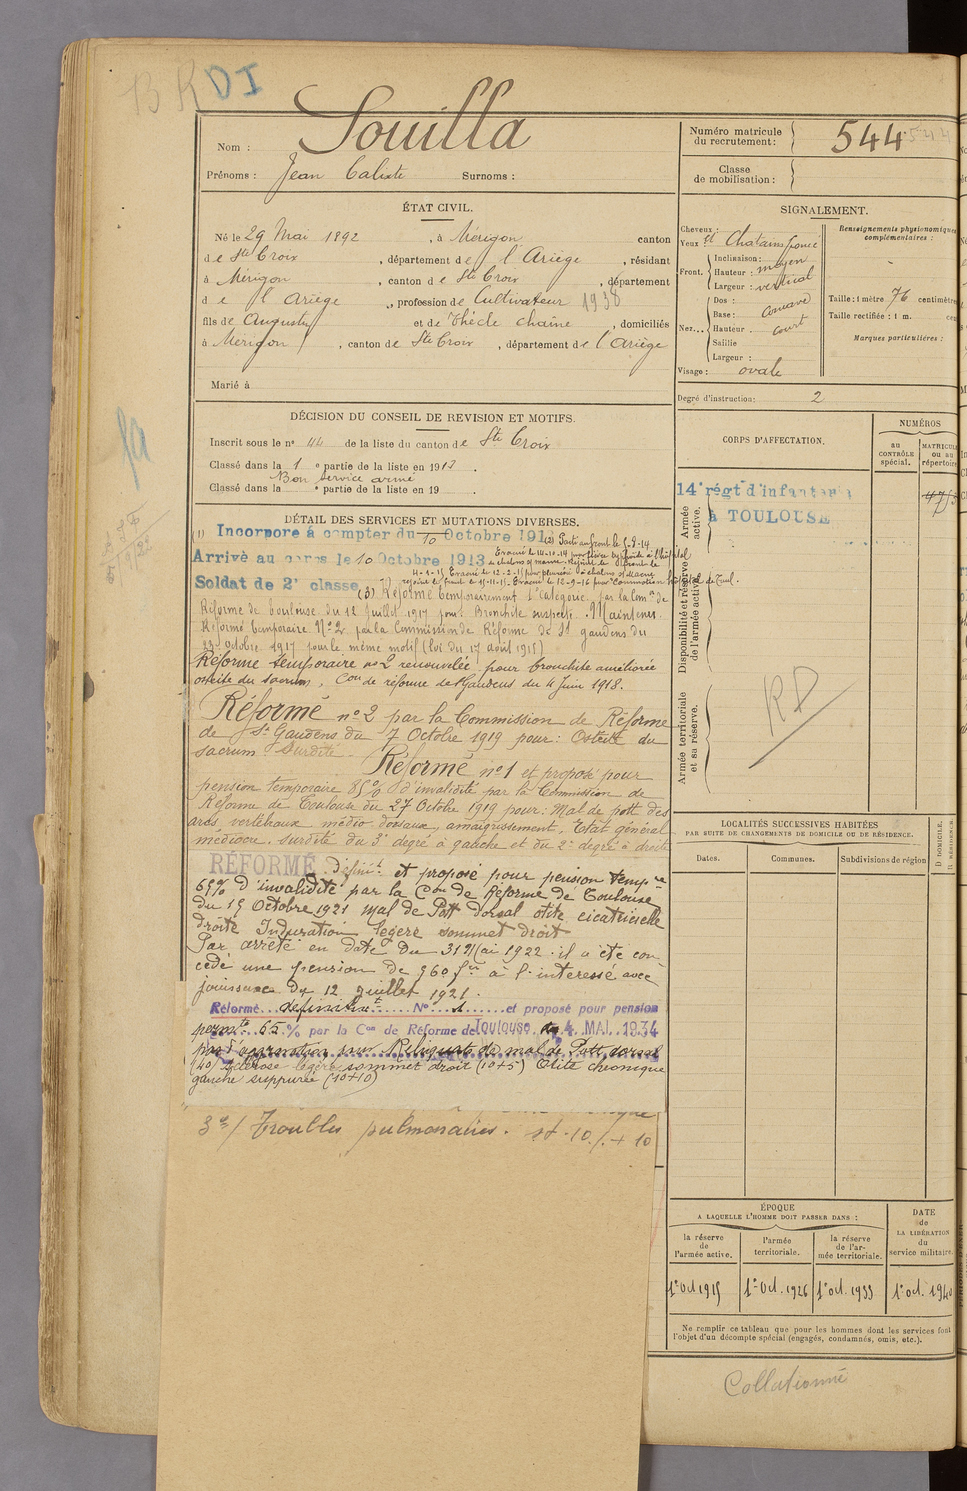 BRDI
Nom : Souilla
Prénoms : Jean Calixte Surnoms :
Numéro matricule du recrutement : 544
Classe de mobilisation :
ÉTAT CIVIL.
Né le 29 Mai 1892, à Mérigon canton
de Ste Croix, département de l'Ariège, résidant
à Mérigon, canton de Ste Croix, département
de l'Ariège, profession de Cultivateur 1938
fils de Augustin et de Thècle Chaîne, domiciliés
à Mérigon, canton de Ste Croix, département de l'Ariège
Marié à
SIGNALEMENT.
Cheveux :
Yeux et Chatains foncé
Front. Inclinaison :
Hauteur : moyen
Largeur : vertical
Nez... Dos :
Base : concave
Hauteur . court
Saillie
Largeur :
Visage : ovale
Renseignements physionomiques complémentaires :
Taille : 1 mètre 76 centimètres
Taille rectifiée : 1 m. cen
Marques particulières :
Degré d'instruction : 2
DÉCISION DU CONSEIL DE REVISION ET MOTIFS.
Inscrit sous le n° 44 de la liste du canton de Ste Croix
Classé dans la 1e partie de la liste en 1913.
Bon service armé
Classé dans la e partie de la liste en 19 .
CORPS D'AFFECTATION.
NUMÉROS
au CONTRÔLE spécial.
MATRICULE ou au répertoire
Armée active.
14e régt d'infanterie
à TOULOUSE
Disponibilité et réserve de l'armée active.
Armée territoriale et sa réserve.
RD
DÉTAIL DES SERVICES ET MUTATIONS DIVERSES.
(1) Incorporé à compter du 10 Octobre 191 (2) Parti au front le 5-8-14
Arrivé au corps le 10 Octobre 1913 Evacué le 14-10-14 pour fièvre typhoïde à l'hôpital
de chalons s/ marne. Rejoint le front le
Soldat de 2e classe
(3) Réformé temporairement 1e Catégorie par la Comon de
Réforme de Toulouse du 12 Juillet 1917 pour Bronchite suspecte. Maintenu
Réformé temporaire N°2 par la Commission de Réforme de St gaudens du
23 octobre 1917 pour le même motif (Loi du 17 août 1915)
Réforme temporaire n°2 renouvelée pour bronchite améliorée
osteite du sacrum. Con de réforme de St Gaudens du 4 Juin 1918.
Réformé n°2 par la Commission de Réforme
de St Gaudens du 7 Octobre 1919 pour : Osteite du
sacrum Surdité
Réformé n°1 et proposé pour
pension temporaire 85% d'invalidité par la Commission de
Réforme de Toulouse du 27 Octobre 1919 pour : Mal de pott des
arcs vertébraux médio dorsaux, amaigrissement, Etat général
médiocre. surdité du 3e degré à gauche et du 2e degré à droite
RÉFORMÉ Définit et proposé pour pension tempre
65% d'invalidité par la Con de Réforme de Toulouse
du 15 Octobre 1921 Mal de Pott dorsal otite cicatricielle
droite Induration légère sommet droit
Par arrêté en date du 31 Mai 1922 il a été con
cédé une pension de 960 frs à l'intéressé avec
jouissance du 12 juillet 1921.
Réformé definitivet N° 1 et proposé pour pension
permte 65 % par la Con de Réforme de Toulouse du 4 MAI 1934
Reliquat de mal de Pott dorsal
(40) sclérose légère sommet droit (10+5) Otite chronique
gauche suppurée (10+10)
3°/ Troubles pulmonaires. 10% + 10
LOCALITÉS SUCCESSIVES HABITÉES
PAR SUITE DE CHANGEMENTS DE DOMICILE OU DE RÉSIDENCE.
Dates. Communes. Subdivisions de région
D DOMICILE.
R RÉSIDENCE.
ÉPOQUE
A LAQUELLE L'HOMME DOIT PASSER DANS :
la réserve de l'armée active. l'armée territoriale. la réserve de l'armée territoriale.
DATE de LA LIBÉRATION du service militaire.
1er Oct 1915 1er Oct. 1926 1er oct. 1933 1er oct. 1940
Ne remplir ce tableau que pour les hommes dont les services font
l'objet d'un décompte spécial (engagés, condamnés, omis, etc.).
Collationné